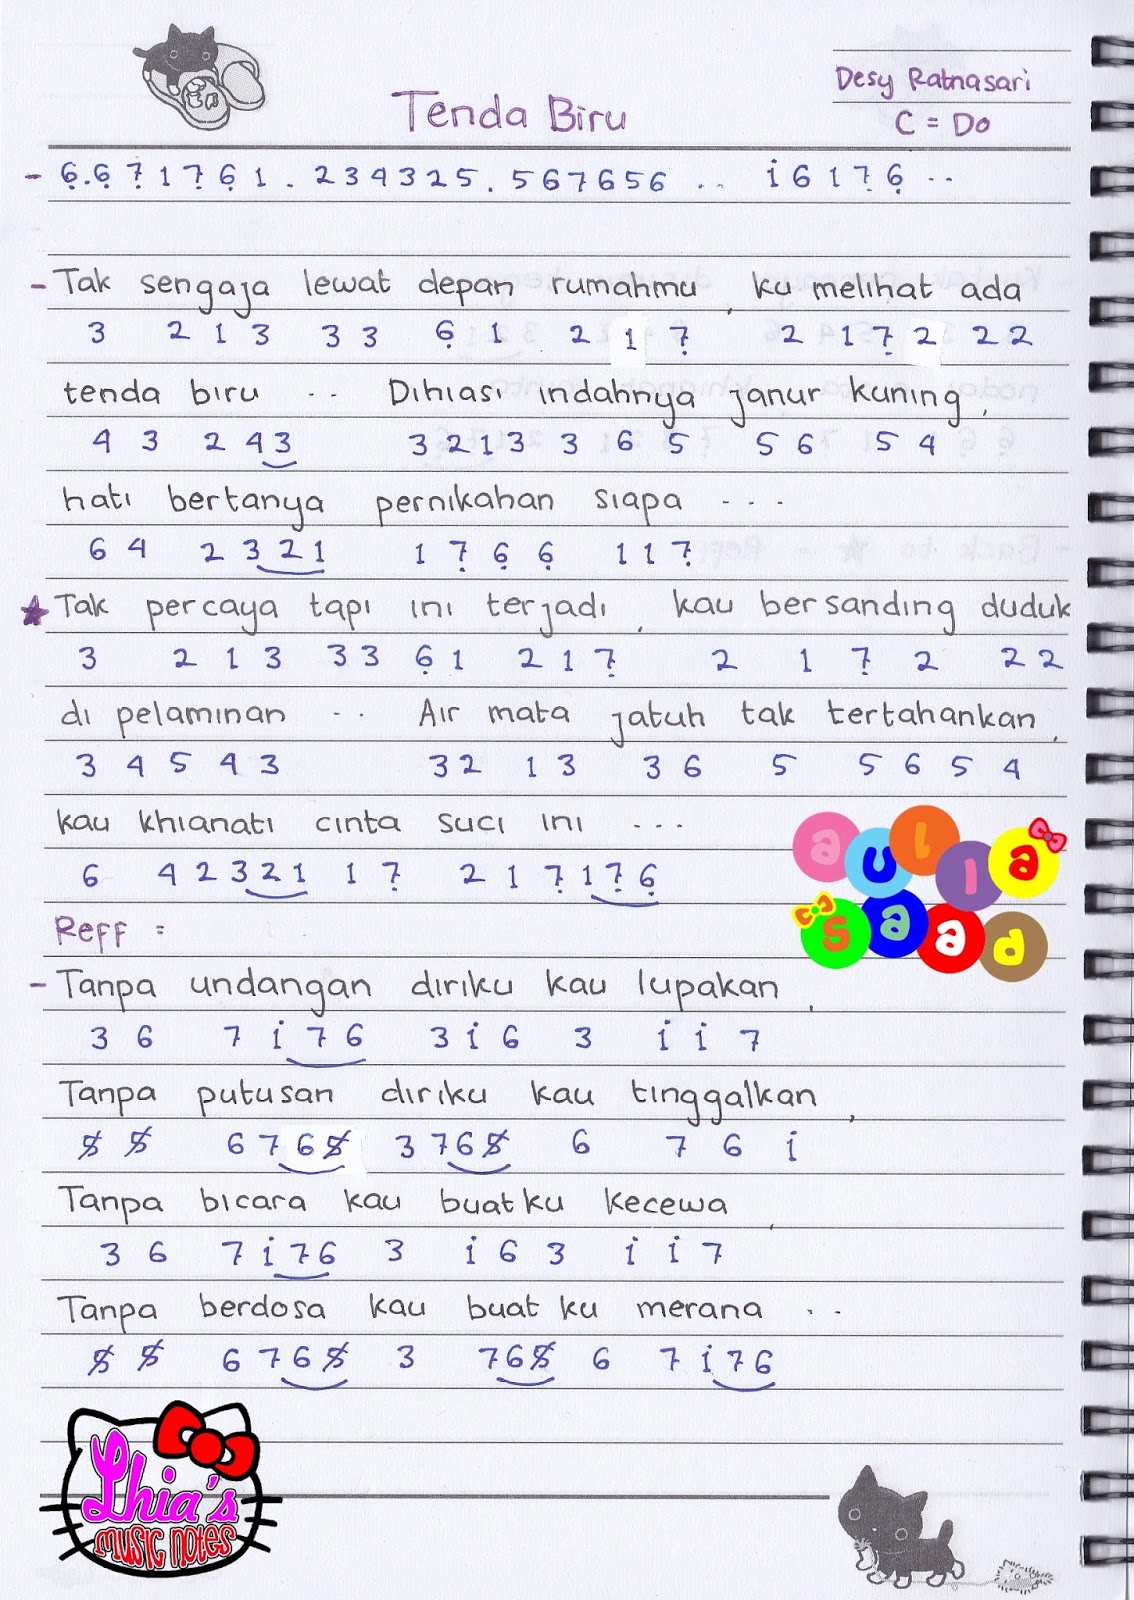 Desy Ratnasari
Tenda Biru
C = Do
- 6̣ . 6̣ 7̣ 1 7̣ 6̣ 1 . 2 3 4 3 2 5 . 5 6 7 6 5 6 .. 1̇ 6 1 7̣ 6̣ ..
- Tak sengaja lewat depan rumahmu, ku melihat ada
3 2 1 3 3 3 6̣ 1 2 1 7̣ 2 1 7̣ 2 2 2
tenda biru .. Dihiasi indahnya janur kuning,
4 3 2 4 3 3 2 1 3 3 6 5 5 6 5 4
hati bertanya pernikahan siapa ...
6 4 2 3 2 1 1 7̣ 6̣ 6̣ 1 1 7̣
★ Tak percaya tapi ini terjadi, kau bersanding duduk
3 2 1 3 3 3 6̣ 1 2 1 7̣ 2 1 7̣ 2 2 2
di pelaminan .. Air mata jatuh tak tertahankan,
3 4 5 4 3 3 2 1 3 3 6 5 5 6 5 4
kau khianati cinta suci ini ...
6 4 2 3 2 1 1 7̣ 2 1 7̣ 1 7̣ 6̣
aulia
saad
Reff :
- Tanpa undangan diriku kau lupakan,
3 6 7 1̇ 7 6 3 1̇ 6 3 1̇ 1̇ 7
Tanpa putusan diriku kau tinggalkan,
5̸ 5̸ 6 7 6 5̸ 3 7 6 5̸ 6 7 6 1̇
Tanpa bicara kau buat ku kecewa,
3 6 7 1̇ 7 6 3 1̇ 6 3 1̇ 1̇ 7
Tanpa berdosa kau buat ku merana ..
5̸ 5̸ 6 7 6 5̸ 3 7 6 5̸ 6 7 1̇ 7 6
Lhia's
music notes